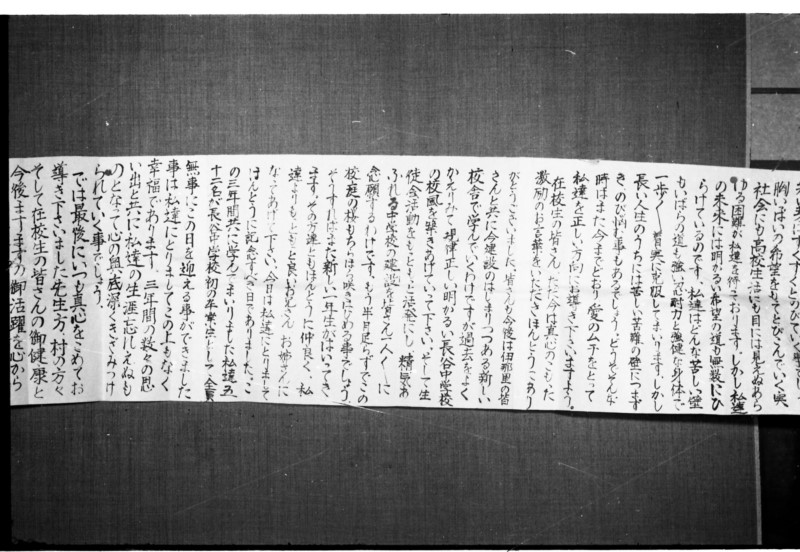 胸いっぱいの希望をもってとびこんでいく実
社会にも高校生活にも目には見えぬあら
ゆる困難が私達を待ております。しかし私達
の未来には明かるい希望の道も無数にひ
らけているのです。私達はどんな苦しい
もいばらの道も強い忍耐力と強健な身体で
一歩〱着実に克服してまいります。しかし
長い人生のうちには苦しい苦難の壁につまず
きのび悩む事もあるでしょう。どうぞそんな
時はまた今までどおり愛のムチをとって
私達を正しい方向にお導き下さいますよう。
在校生の皆さんただ今は真心のこもった
激励のお言葉をいただきほんとうにあり
がとうございました。皆さんも今後は伊那里の皆
さんと共に今建設のはじまりつつある新しい
校舎で学んでいくわけですが過去をよく
かえりみて規律正しい明かるい長谷中学校
の校風を築きあげていって下さい。そして生
徒会活動をもっともっと活発にし精気あ
ふれる中学校の建設を皆さん一人〱に
念願するわけです。もう半月足らずでこの
校庭の桜もちらほら咲きはじめる事でしょう。
そうすればまた新しい一年生がはいってき
ます。その方達にもほんとうに仲良く、私
達よりももっと良いお兄さんお姉さんに
なってあげて下さい。今日は私達にとりまして
ほんとうに記念すべき日であります。こ
の三年間共に学んでまいりました私達五
十二名が長谷中学校初の卒業生として全員
無事にこの日を迎える事ができました
事は私達にとりましてこの上もなく
幸福であります。三年間の数々の思
い出と共に私達の生涯忘れえぬも
のとなって心の奥底深くきざみつけ
られていく事でしょう。
では最後にいつも真心をこめてお
導き下さいました先生方、村の方々
そして在校生の皆さんの御健康と
今後ますますの御活躍を心から